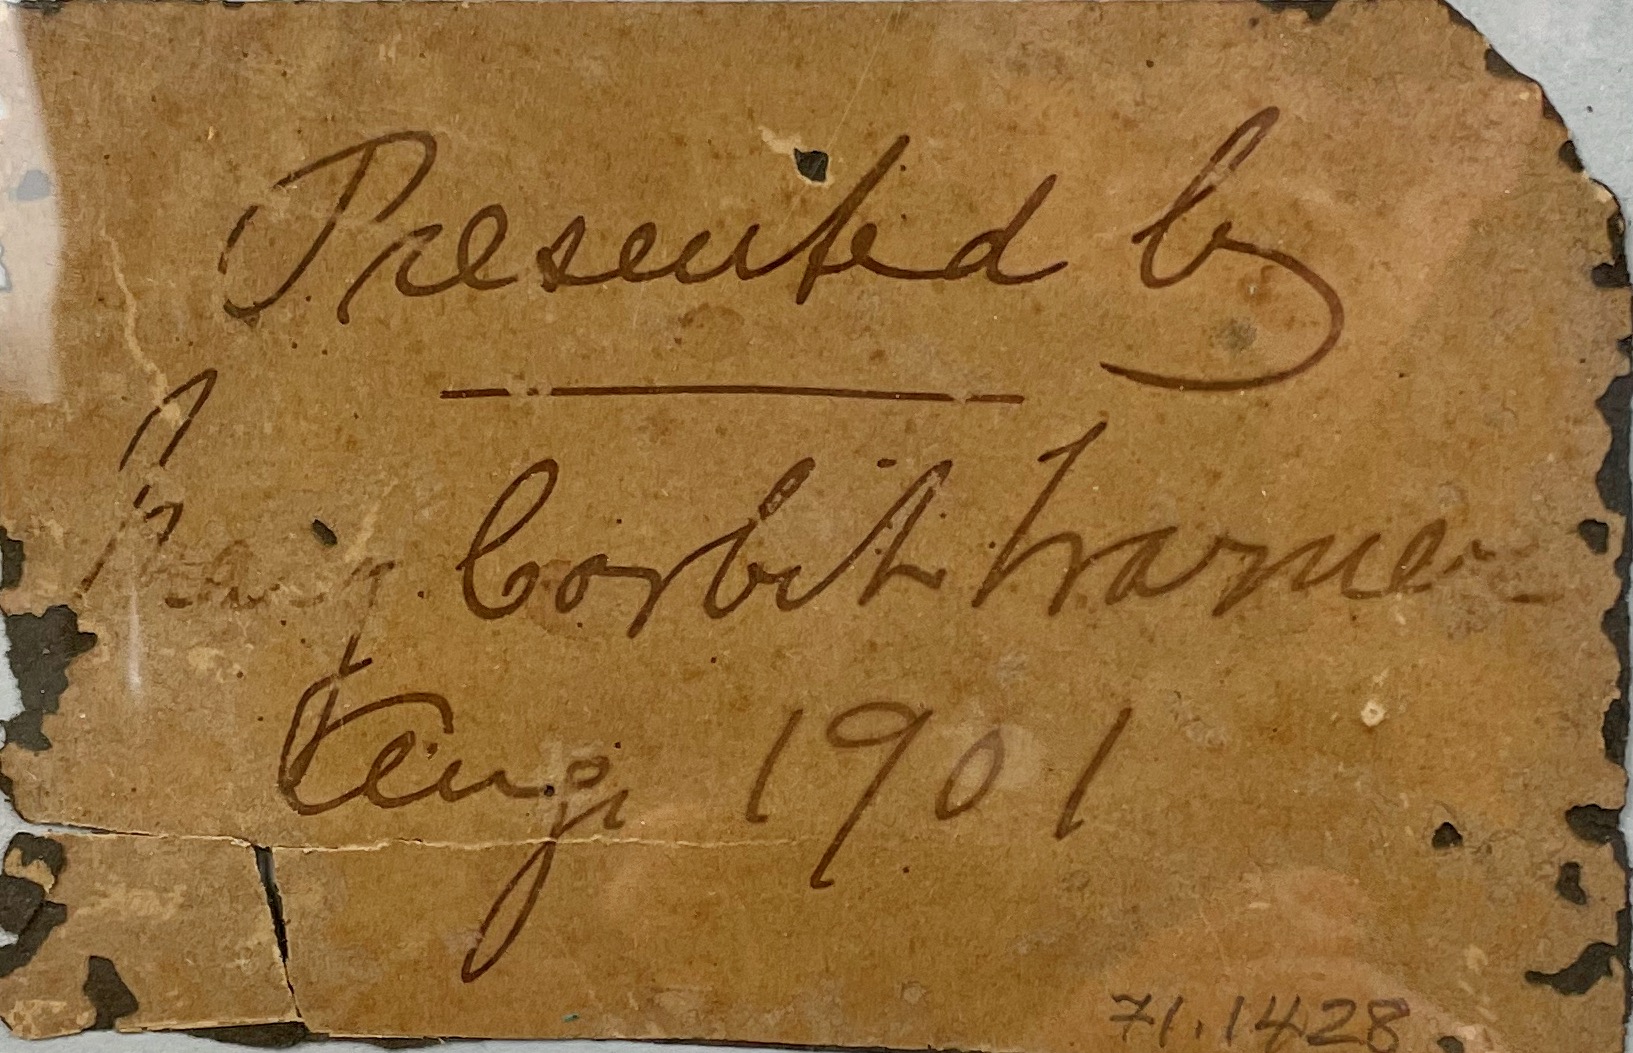 Presented by
Mary Corbit Warner
Aug 1901
71.1428